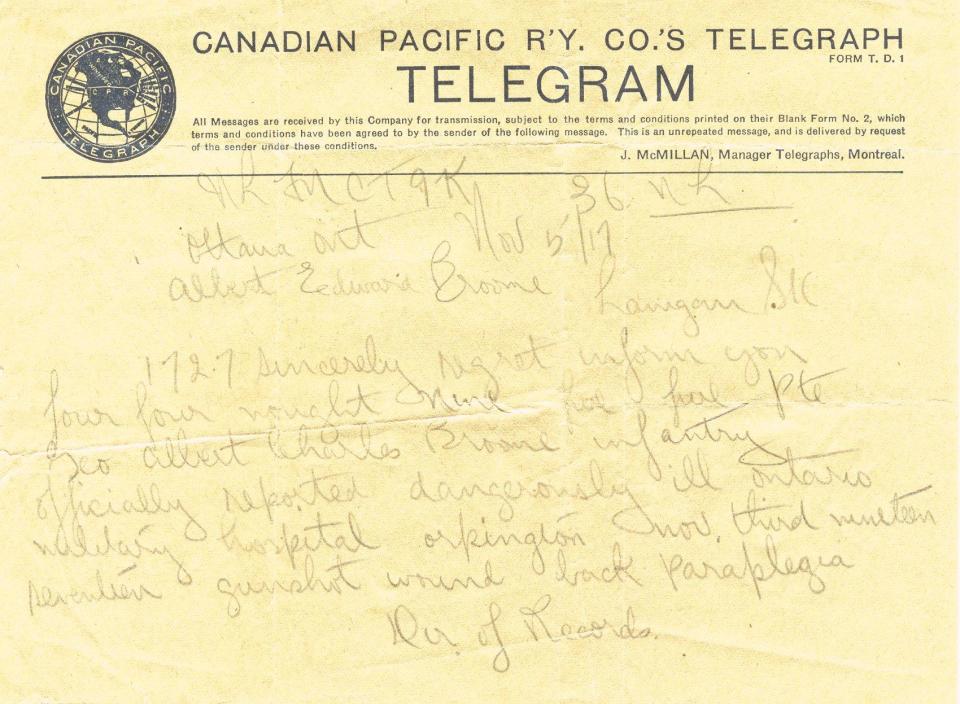 CANADIAN PACIFIC
C.P.R.
TELEGRAPH
CANADIAN PACIFIC R'Y. CO.'S TELEGRAPH
FORM T. D. 1
TELEGRAM
All Messages are received by this Company for transmission, subject to the terms and conditions printed on their Blank Form No. 2, which
terms and conditions have been agreed to by the sender of the following message. This is an unrepeated message, and is delivered by request
of the sender under these conditions.
J. McMILLAN, Manager Telegraphs, Montreal.
36 NL
Ottawa Ont Nov 5/17
Albert Edward Broome Lanigan SK
1727 sincerely regret inform you
four four nought nine Pte
Geo Albert Charles Broome infantry
officially reported dangerously ill ontario
military hospital orpington nov. third nineteen
seventeen gunshot wound back paraplegia
Dir. of Records.